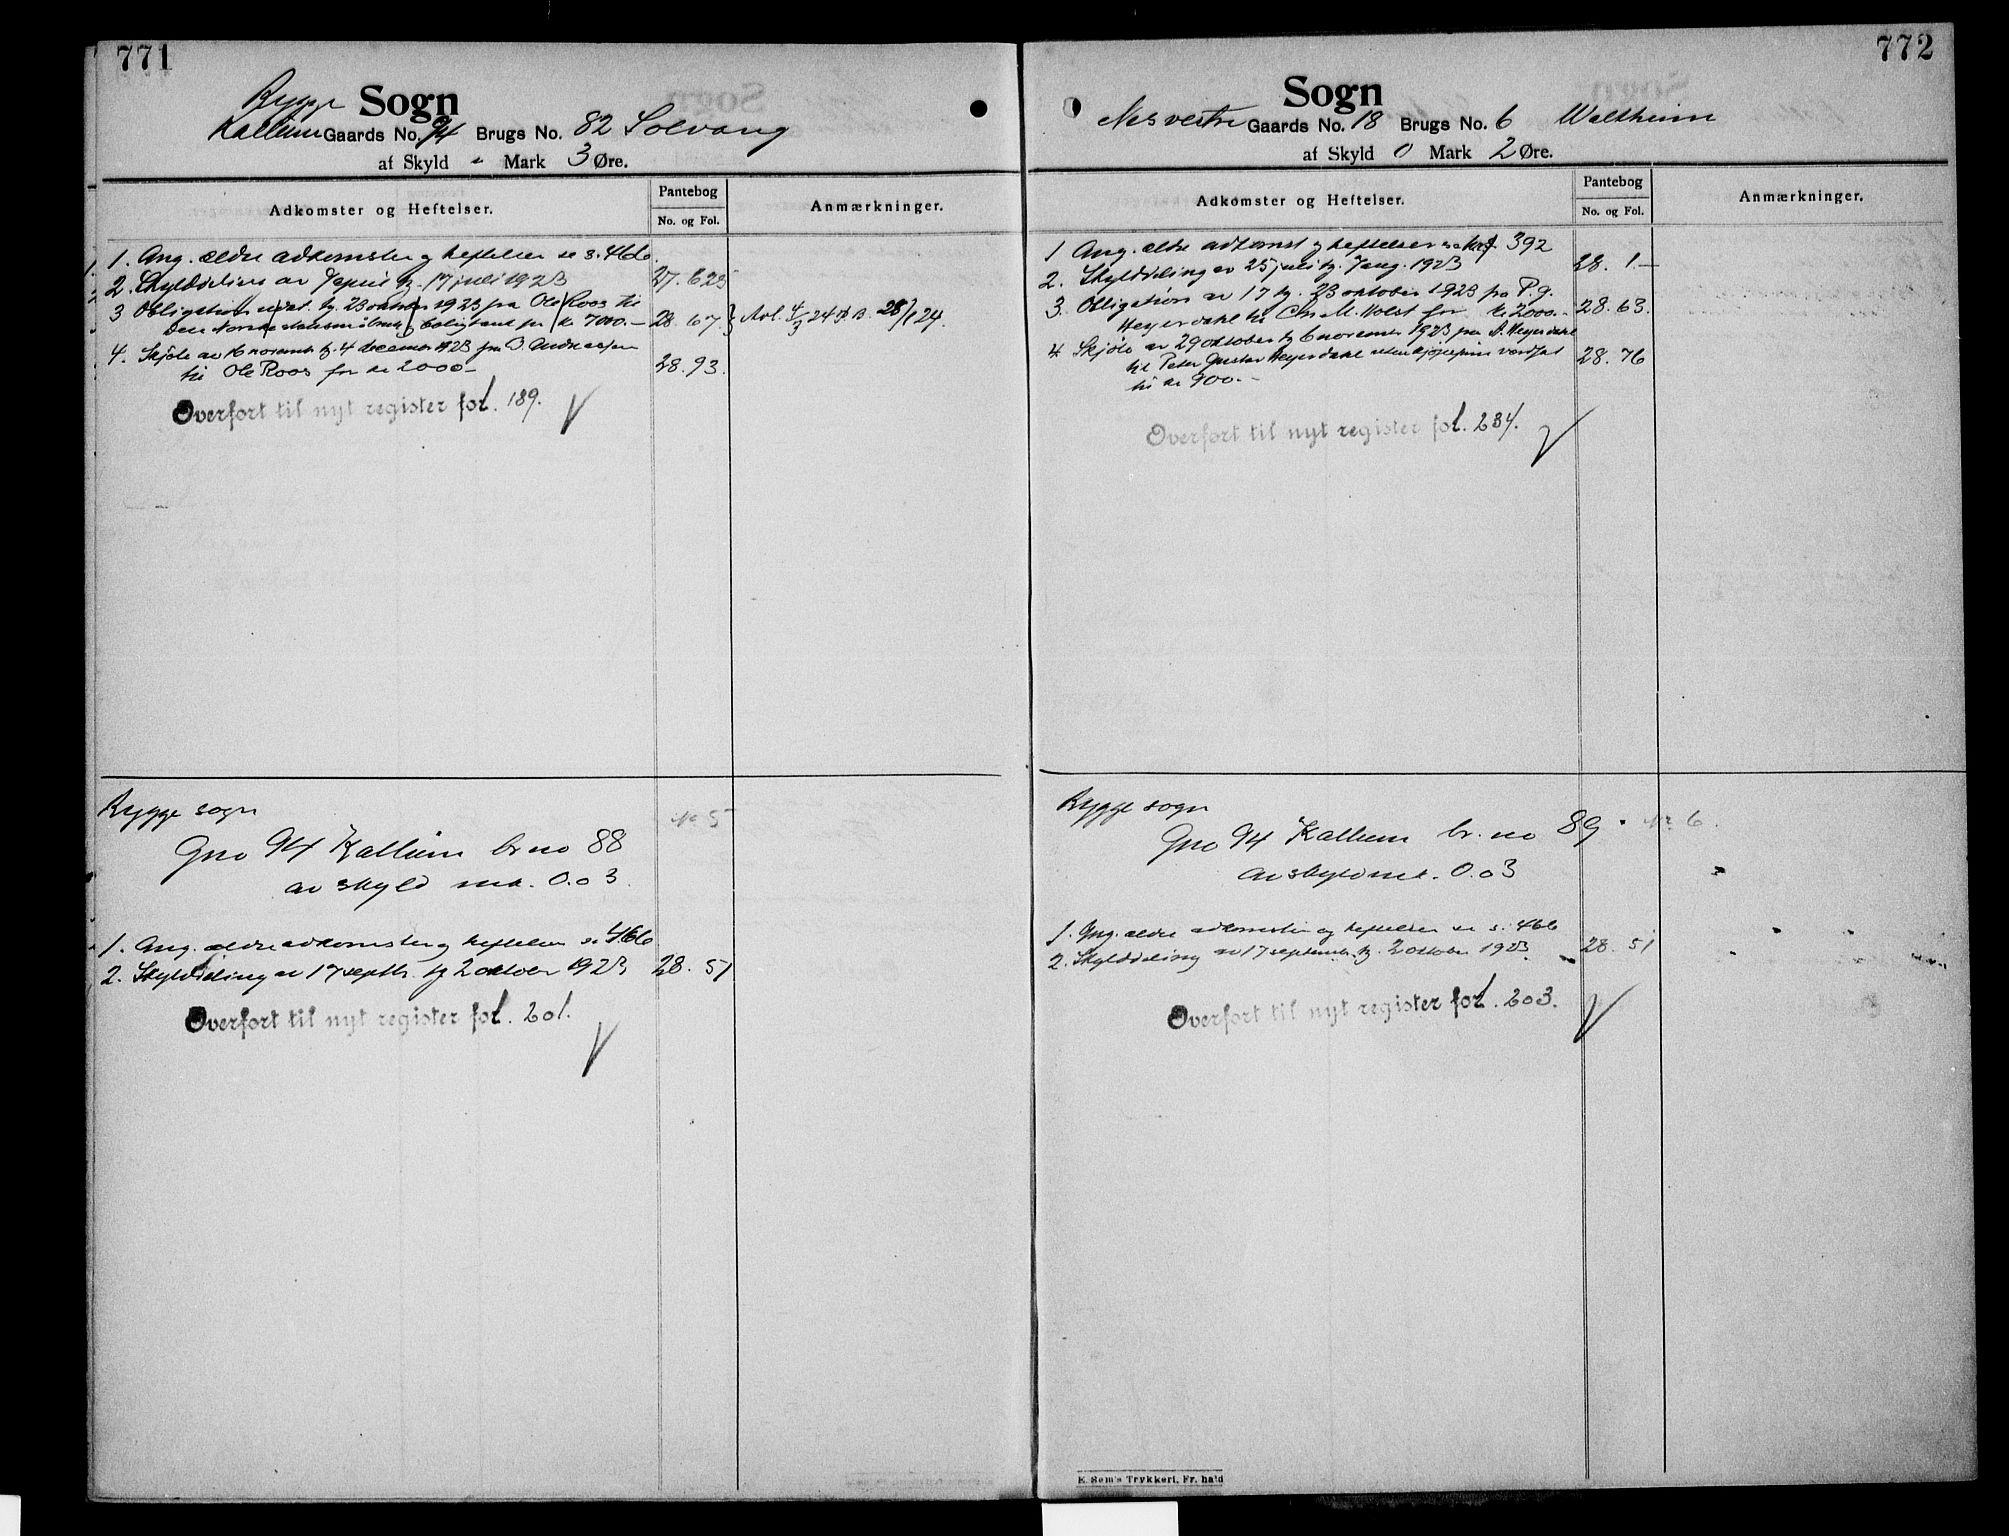 771
Rygge Sogn
Kallum Gaards No. 94 Brugs No. 82 Solvang
af Skyld " Mark 3 Øre.
Adkomster og Heftelser.
Pantebog
No. og Fol.
Anmærkninger.
1. Ang. ældre adkomster og heftelser se s. 466.
2. Skylddeling av 7 juni tg. 17 juli 1923 27. 625
3 Obligation tg. 23 oktober 1923 fra Ole Roos til
Den norske boligbank for kr 7000.— 28. 67 Avl. 4/3 24 28/1 24.
4. Skjøte av 16 novemb tg. 4 december 1923 fra B. Andreassen
til Ole Roos for kr 2000.— 28. 93.
Overført til nyt register fol. 189.
Rygge sogn
No 5
Gno 94 Kallum br no 88
av skyld mrk. 0.03.
1. Ang. ældre adkomster og heftelser se s. 466
2. Skylddeling av 17 septbr. tg 2 oktober 1923 28. 51
Overført til nyt register fol. 201.
772
Sogn
Nes vestre Gaards No. 18 Brugs No. 6 Waltheim
af Skyld 0 Mark 2 Øre.
Adkomster og Heftelser.
Pantebog
No. og Fol.
Anmærkninger.
1 Ang. ældre adkomst og heftelser se 392
2. Skylddeling av 25 juli tg. 7 aug. 1923 28. 1.—
3. Obligation av 17 tg. 23 oktober 1923 fra P. g.
Heyerdahl til Chr. M. Holst for kr 2000.— 28. 63.
4 Skjøte av 29 oktober tg 6 november 1923 fra A. Heyerdahl
til Peter Gustav Heyerdahl uten kjøpesum værdsat
til kr 900.— 28. 76
Overført til nyt register fol. 234.
Rygge sogn
Gno 94 Kallum br. no 89. No 6.
av skyld mrk. 0.03
1. Ang. ældre adkomster og heftelser se s. 466
2. Skylddeling av 17 septembr. tg. 2 oktober 1923 28. 51
Overført til nyt register fol. 203.
E. Sem's Trykkeri, Fr. hald